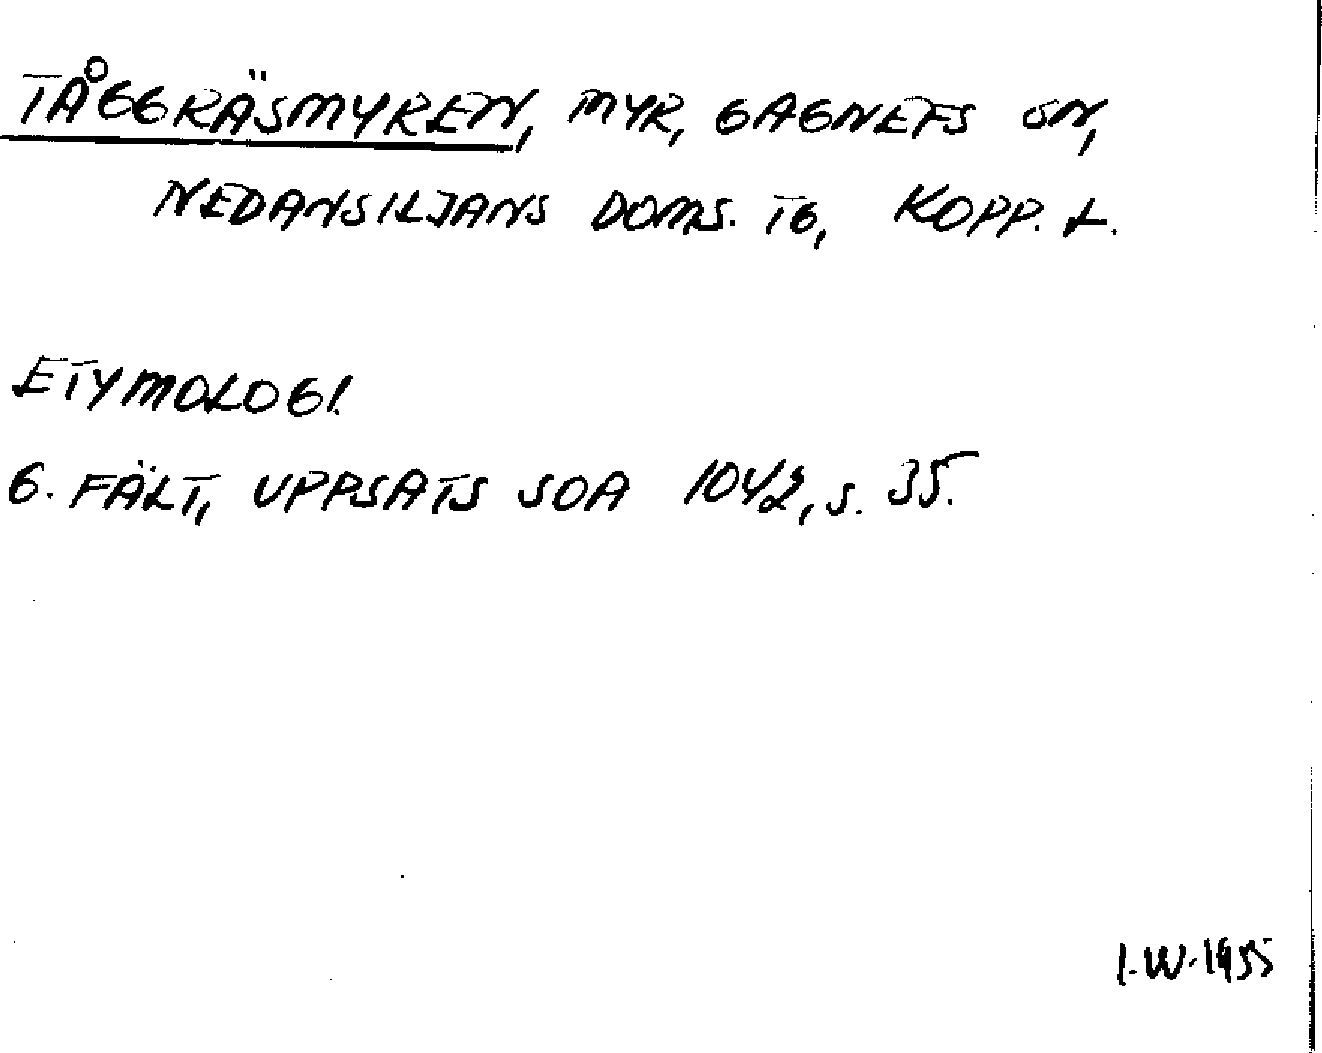 TÅGGRÄSMYREN, MYR, GAGNEFS SN,
NEDANSILJANS DOMS. TG, KOPP. L.
ETYMOLOGI.
G. FÄLT, UPPSATS SOA 1042, s. 35.
I.W. 1955